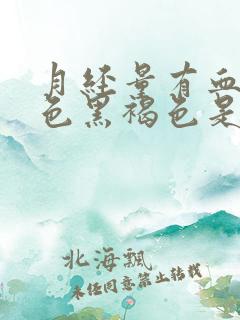 月经量有血
色黑褐色是
北海飘
未经同意禁止转载